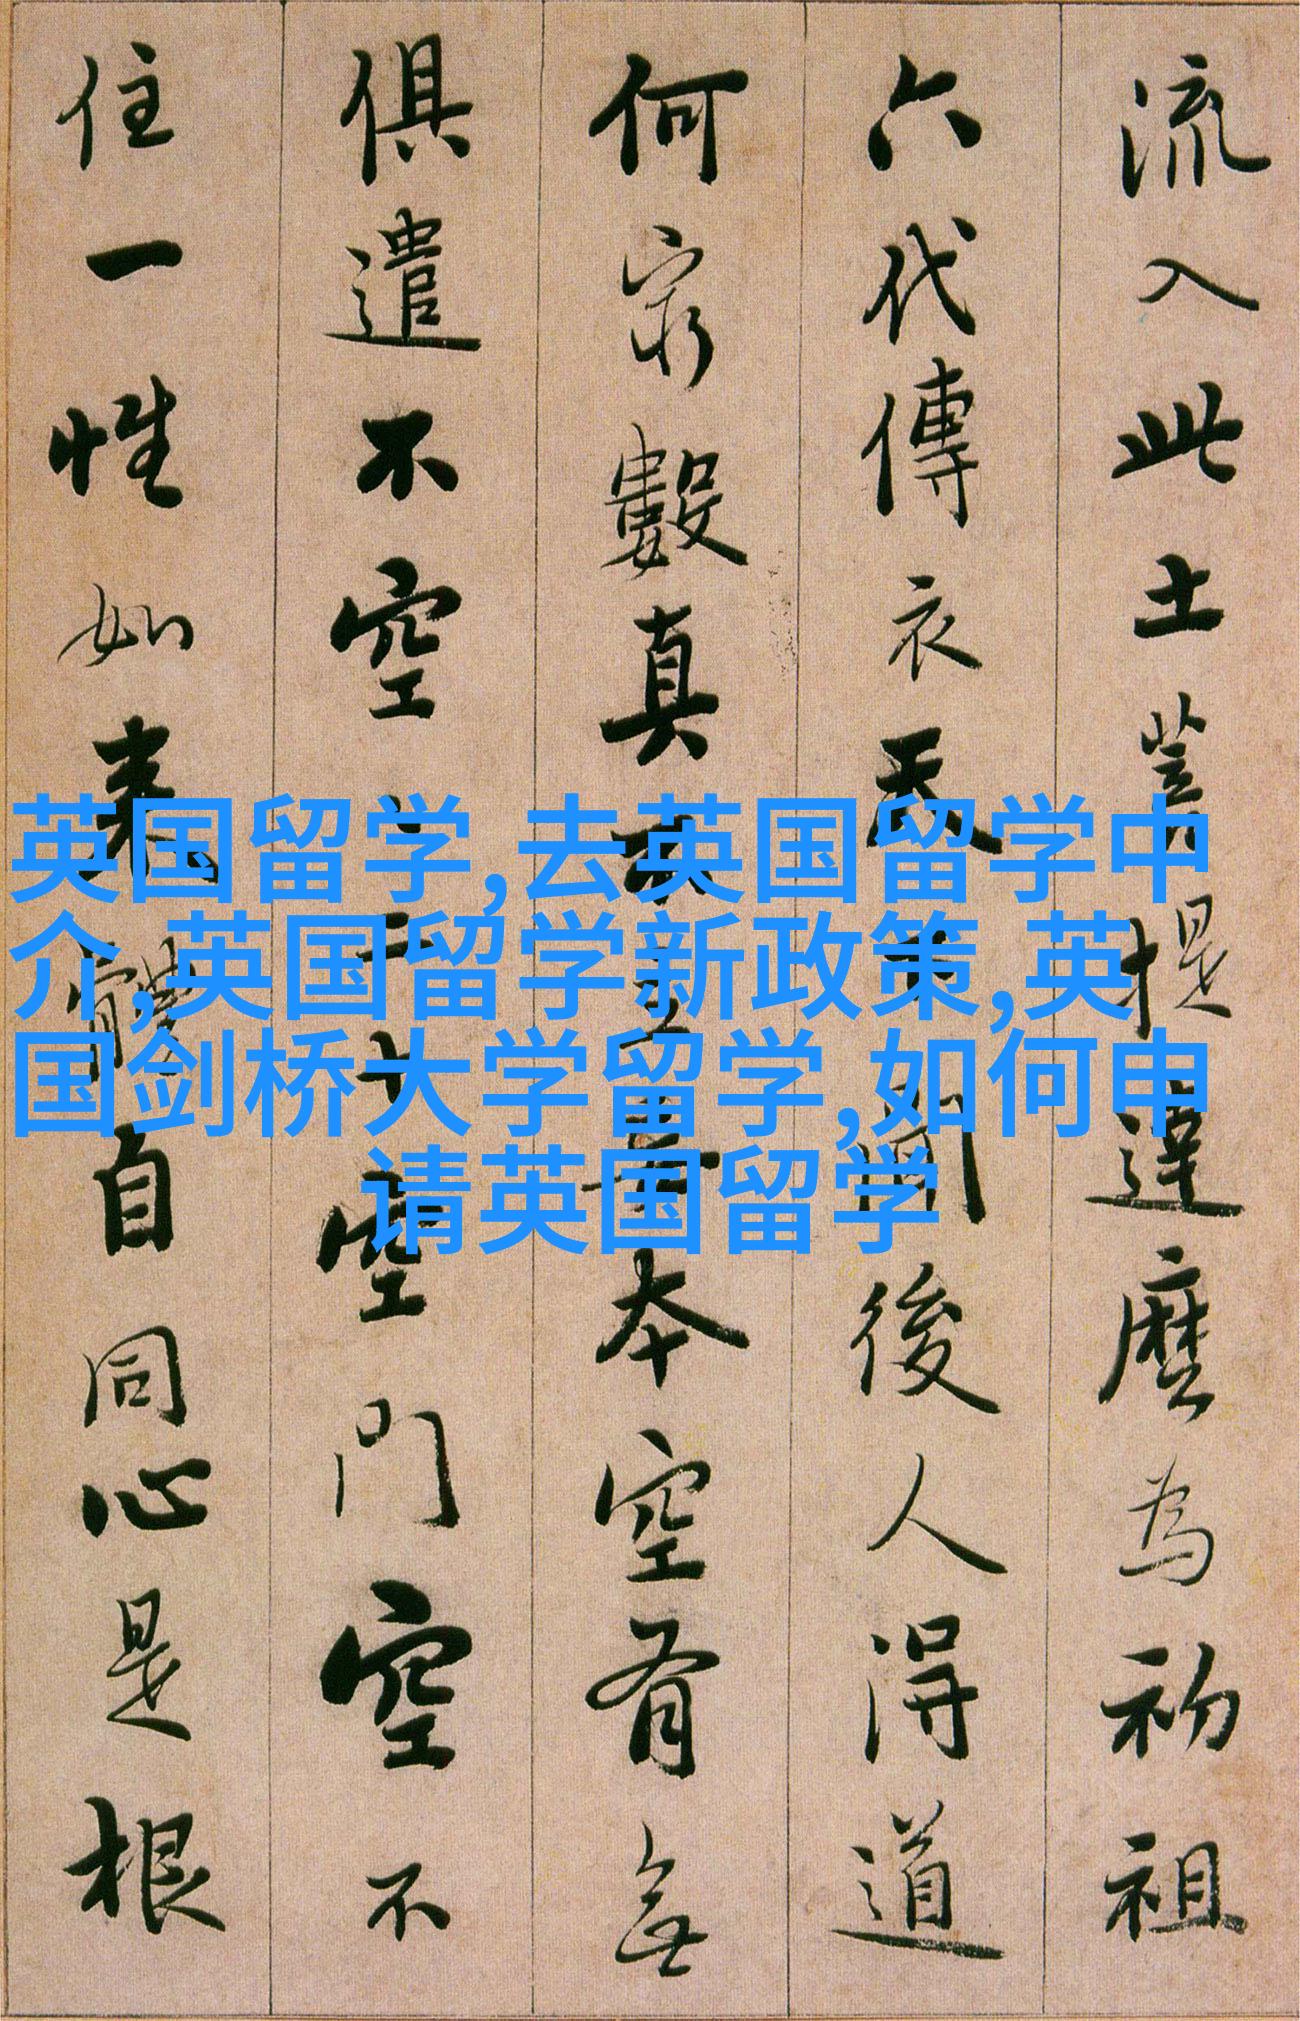 英国留学,去英国留学中
介,英国留学新政策,英
国剑桥大学留学,如何申
请英国留学
流入此土菩提達磨為初祖
六代傳衣天下聞後人得道
何窮數真不立妄本空有無
俱遣不空空二十空門空不
住一性如來體自同心是根